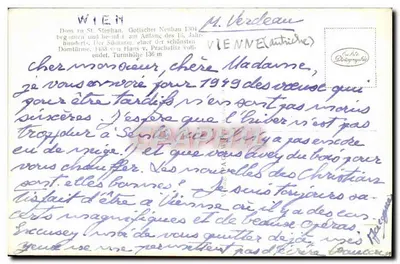 WIEN
M. Verdeau
VIENNE (Autriche)
Dom zu St. Stephan. Gotischer Neubau 1304
begonnen und beendet am Anfang des 15. Jahr-
hunderts. Der Südturm, einer der schönsten
Domtürme, 1433 von Hans v. Prachatitz voll-
endet. Turmhöhe 136 m
Cher monsieur, chère Madame,
je vous envoie pour 1949 des voeux qui
pour être tardifs n'en sont pas moins
sincères. J'espère que l'hiver n'est pas
trop dur à il n'y a pas encore
eu de neige) et que vous avez du bois pour
vous chauffer. Les nouvelles des Christian
sont-elles bonnes? Je suis toujours sa-
tisfait d'être à Vienne où il y a des con-
certs magnifiques et de beaux opéras.
Excusez moi de vous quitter déjà, mes
yeux ne me permettent pas d'écrire beaucoup